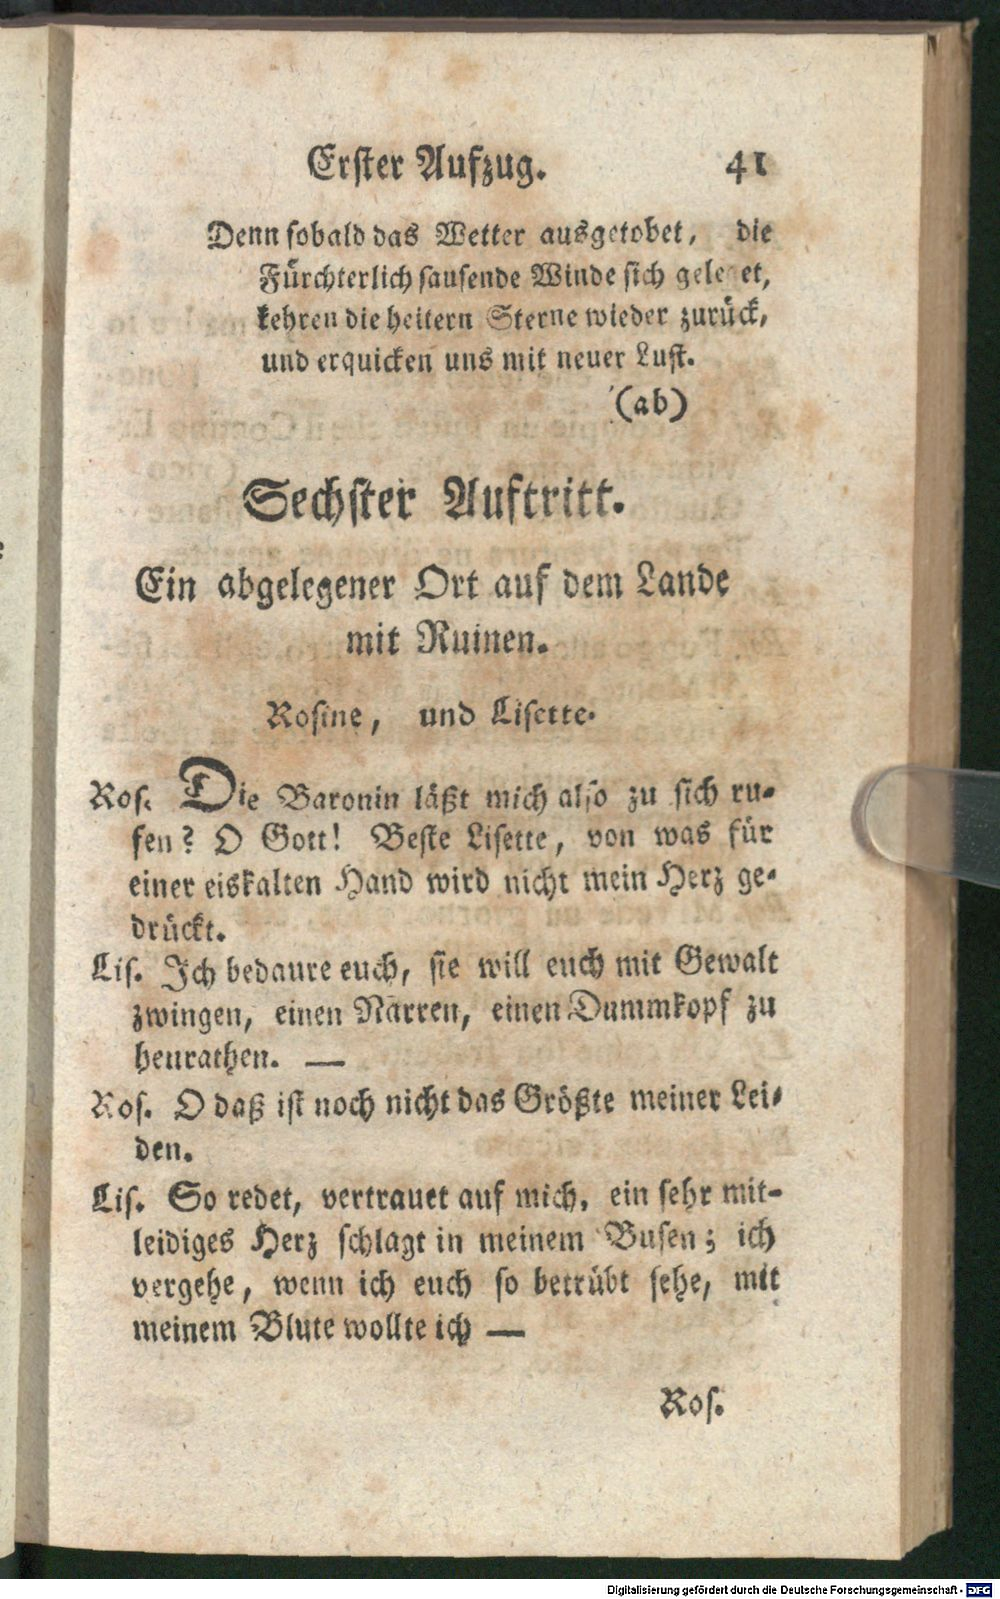 Erster Aufzug. 41
Denn sobald das Wetter ausgetobet, die
Fürchterlich sausende Winde sich geleget,
kehren die heitern Sterne wieder zurück,
und erquicken uns mit neuer Lust.
(ab)
Sechster Auftritt.
Ein abgelegener Ort auf dem Lande
mit Ruinen.
Rosine, und Lisette.
Ros. Die Baronin läßt mich also zu sich ru-
fen? O Gott! Beste Lisette, von was für
einer eiskalten Hand wird nicht mein Herz ge-
drückt.
Lis. Ich bedaure euch, sie will euch mit Gewalt
zwingen, einen Narren, einen Dummkopf zu
heurathen. —
Ros. O daß ist noch nicht das Größte meiner Lei-
den.
Lis. So redet, vertrauet auf mich, ein sehr mit-
leidiges Herz schlagt in meinem Busen; ich
vergehe, wenn ich euch so betrübt sehe, mit
meinem Blute wollte ich —
Ros.
Digitalisierung gefördert durch die Deutsche Forschungsgemeinschaft - DFG